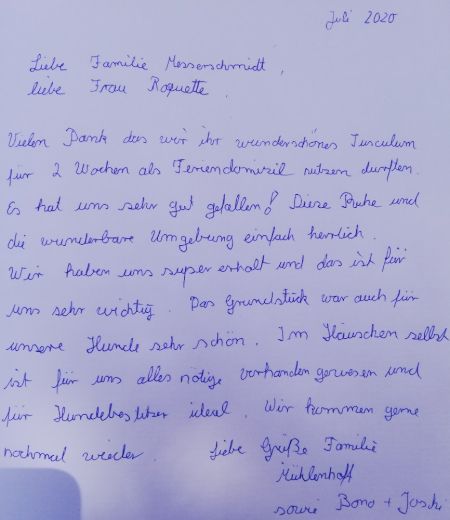 Juli 2020
Liebe Familie Messerschmidt,
liebe Frau Roquette,
Vielen Dank das wir ihr wunderschönes Tusculum
für 2 Wochen als Feriendomizil nutzen durften.
Es hat uns sehr gut gefallen! Diese Ruhe und
die wunderbare Umgebung einfach herrlich.
Wir haben uns super erholt und das ist für
uns sehr wichtig. Das Grundstück war auch für
unsere Hunde sehr schön. Im Häuschen selbst
ist für uns alles nötige vorhanden gewesen und
für Hundebesitzer ideal. Wir kommen gerne
nochmal wieder. Liebe Grüße Familie
Mühlenhoff
sowie Bono + Joschi